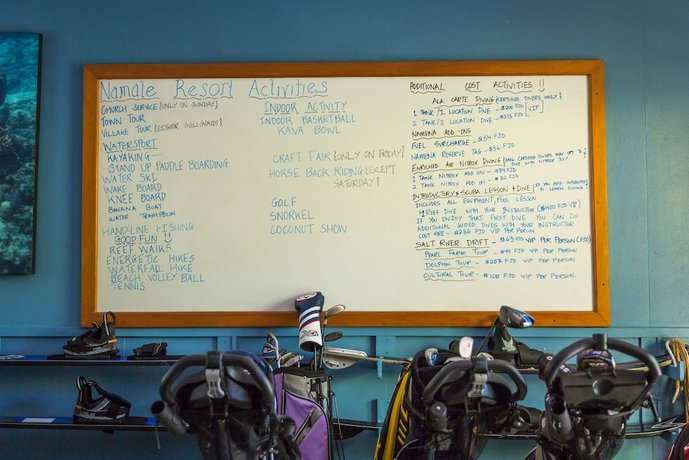 Namale Resort Activities
CHURCH SERVICE {ONLY ON SUNDAY}
TOWN TOUR
VILLAGE TOUR {EITHER NILI/NAIDI}
WATERSPORT
KAYAKING
STAND UP PADDLE BOARDING
WATER SKI
WAKE BOARD
KNEE BOARD
BANANA BOAT
WATER TRAMPOLIN
HAND-LINE FISHING
GOOD FUN !!
REEF WALKS
ENERGETIC HIKES
WATERFALL HIKE
BEACH VOLLEY BALL
TENNIS
INDOOR ACTIVITY
INDOOR BASKETBALL
KAVA BOWL
CRAFT FAIR {ONLY ON FRIDAY}
HORSE BACK RIDING {EXCEPT
SATURDAY}
GOLF
SNORKEL
COCONUT SHOW
ADDITIONAL COST ACTIVITIES !!
ALA CARTE DIVING {CERTIFIED DIVERS ONLY}
1 TANK/1 LOCATION DIVE - $200 FJD
2 TANK/2 LOCATION DIVE - $375 FJD
VIP
NAMENA ADD-ONS
FUEL SURCHARGE - $54 FJD
NAMENA RESERVE TAG - $36 FJD
ENRICHED AIR NITROX DIVING
1 TANK NITROX ADD ON -
2 TANK NITROX ADD ON -
INTRODUCTORY SCUBA LESSON + DIVE
INCLUDES ALL EQUIPMENT, POOL LESSON
1 REEF DIVE WITH YOUR INSTRUCTOR ($400 FJD VIP)
IF YOU ENJOY THAT FIRST DIVE YOU CAN DO
ADDITIONAL GUIDED DIVES WITH YOUR INSTRUCTOR
COST PRE - $236 FJD VIP PER PERSON
SALT RIVER DRIFT - $63 FJD VIP PER PERSON (FJD)
PEARL FARM TOUR - $44 FJD VIP PER PERSON
DOLPHIN TOUR - $207 FJD VIP PER PERSON
CULTURAL TOUR - $100 FJD VIP PER PERSON